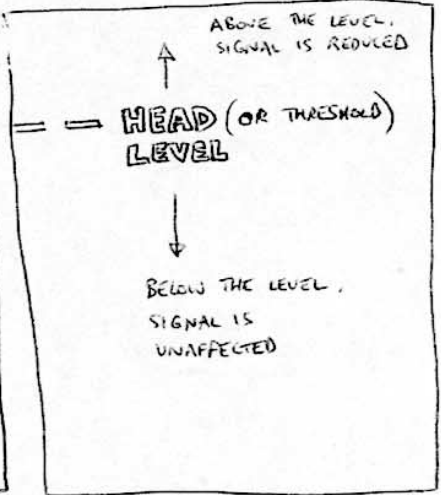 ABOVE THE LEVEL,
SIGNAL IS REDUCED
HEAD (OR THRESHOLD)
LEVEL
BELOW THE LEVEL,
SIGNAL IS
UNAFFECTED